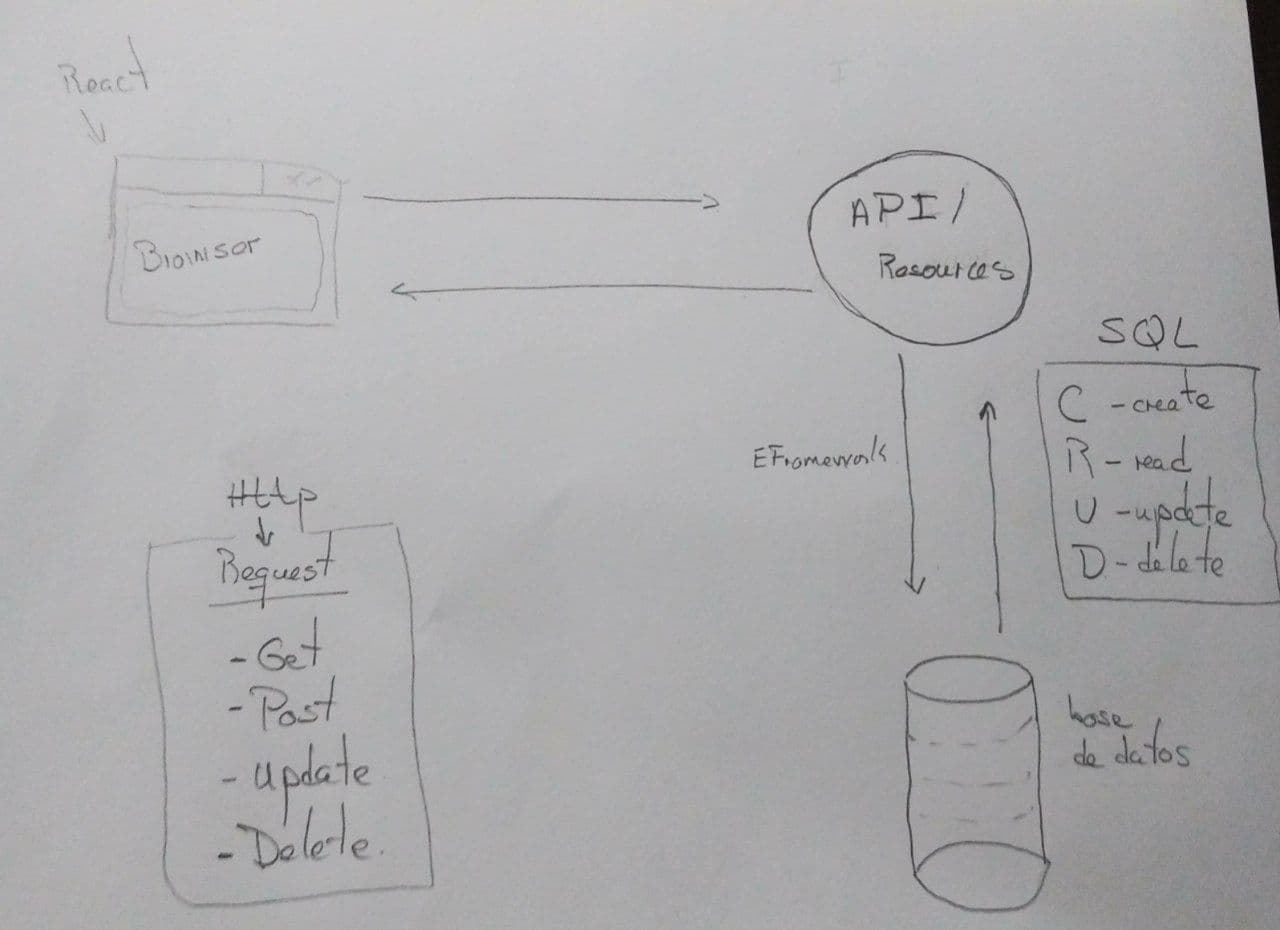 React
Browser
API/
Resources
SQL
C - create
R - read
U - update
D - delete
EFramework
Http
Request
- Get
- Post
- Update
- Delete.
base
de datos